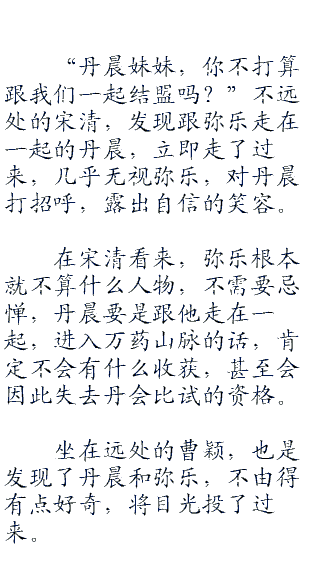 “丹晨妹妹，你不打算
跟我们一起结盟吗？”不远
处的宋清，发现跟弥乐走在
一起的丹晨，立即走了过
来，几乎无视弥乐，对丹晨
打招呼，露出自信的笑容。
在宋清看来，弥乐根本
就不算什么人物，不需要忌
惮，丹晨要是跟他走在一
起，进入万药山脉的话，肯
定不会有什么收获，甚至会
因此失去丹会比试的资格。
坐在远处的曹颖，也是
发现了丹晨和弥乐，不由得
有点好奇，将目光投了过
来。